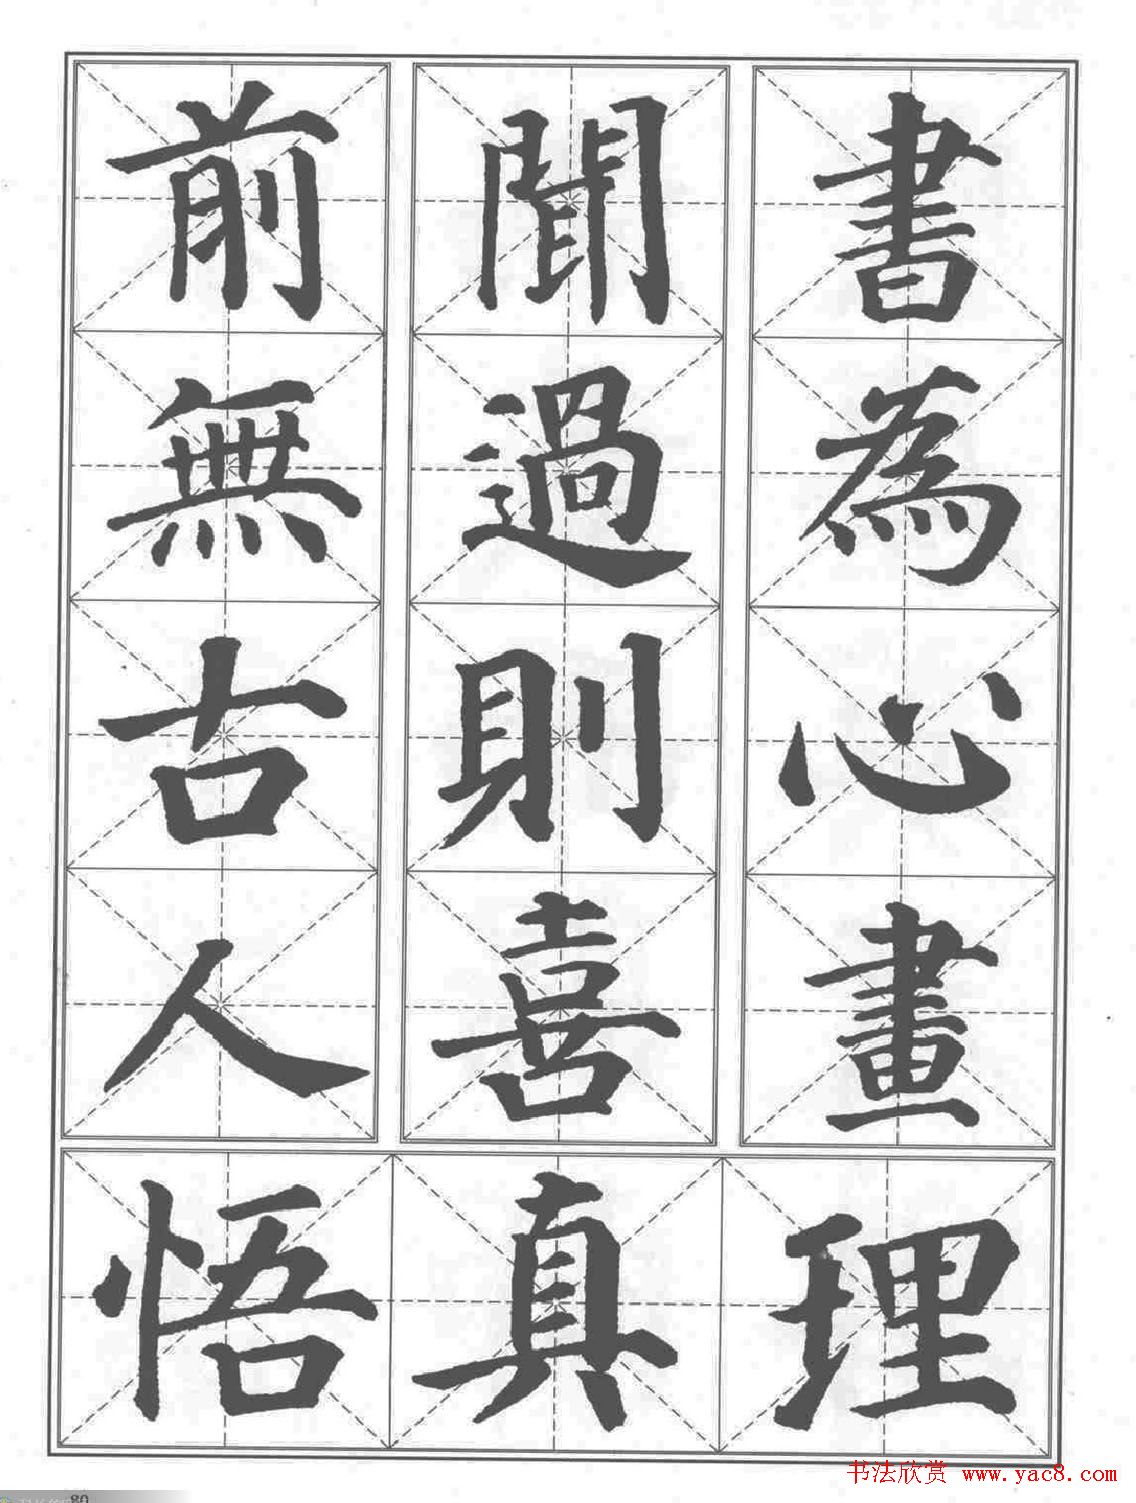 書為心畫
聞過則喜
前無古人
悟真理
书法欣赏 www.yac8.com
80